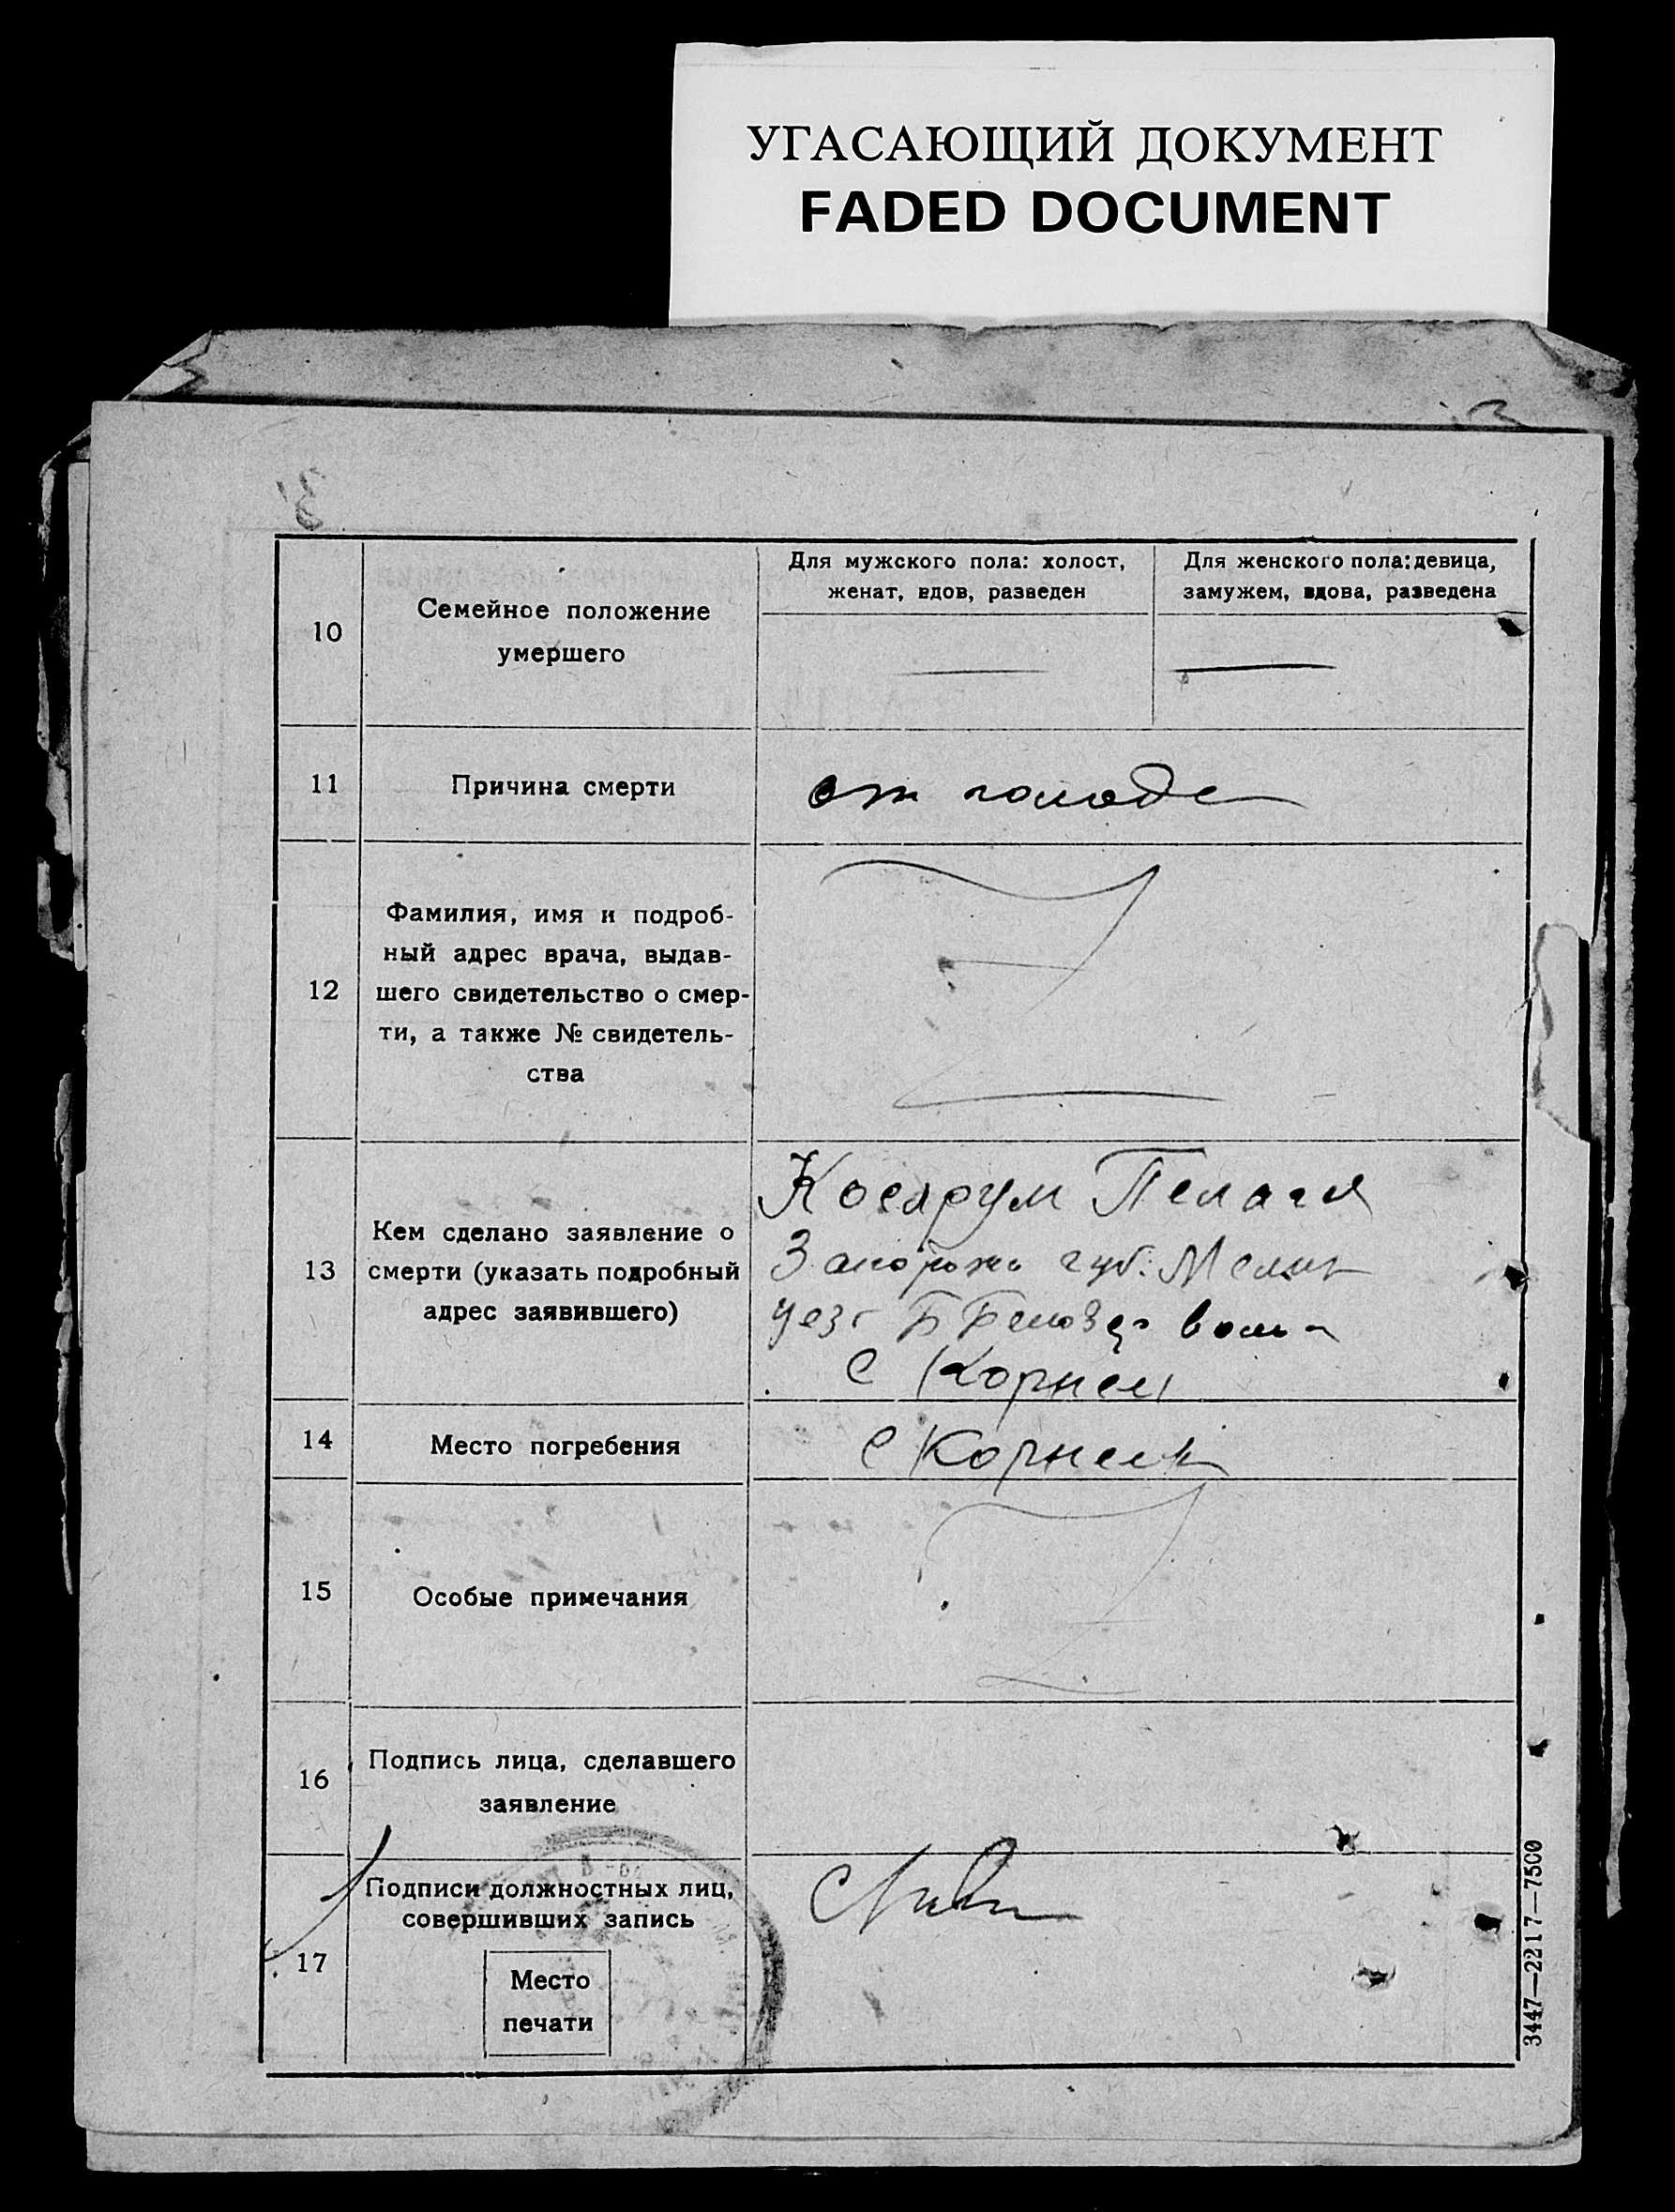 УГАСАЮЩИЙ ДОКУМЕНТ
FADED DOCUMENT
10
Семейное положение
умершего
Для мужского пола: холост,
женат, вдов, разведен
Для женского пола: девица,
замужем, вдова, разведена
11
Причина смерти
от голода
12
Фамилия, имя и подроб-
ный адрес врача, выдав-
шего свидетельство о смер-
ти, а также № свидетель-
ства
13
Кем сделано заявление о
смерти (указать подробный
адрес заявившего)
Пелагея
Запорожс губ. Мелит
уезд Б Белозер волос
с Корнеев
14
Место погребения
с Корнеев
15
Особые примечания
16
Подпись лица, сделавшего
заявление
17
Подписи должностных лиц,
совершивших запись
Место
печати
3447—2217—7500